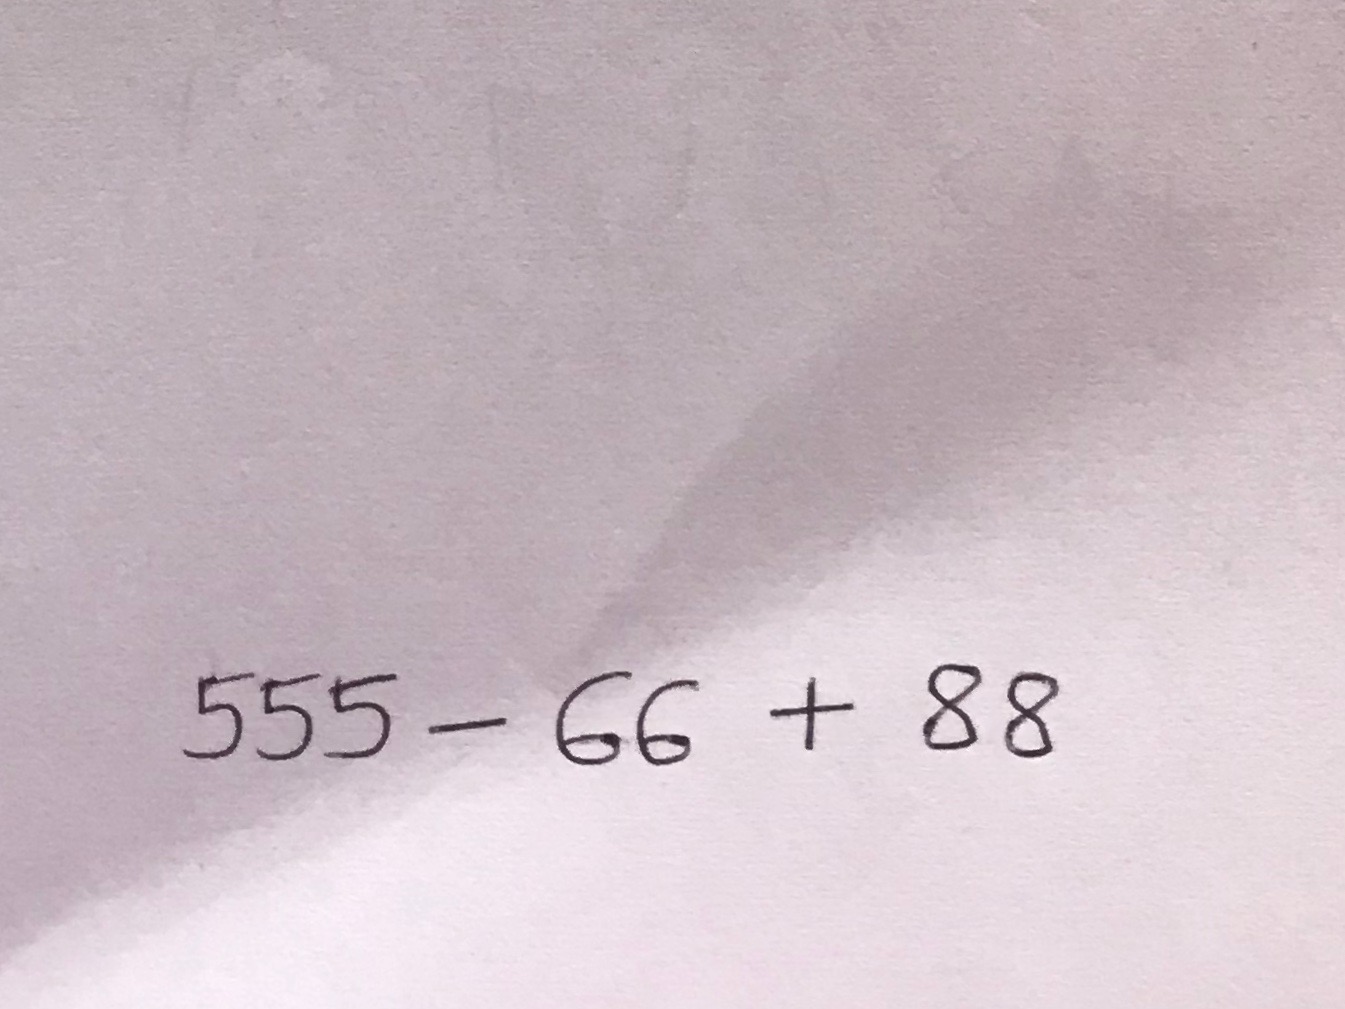 555 - 66 + 88